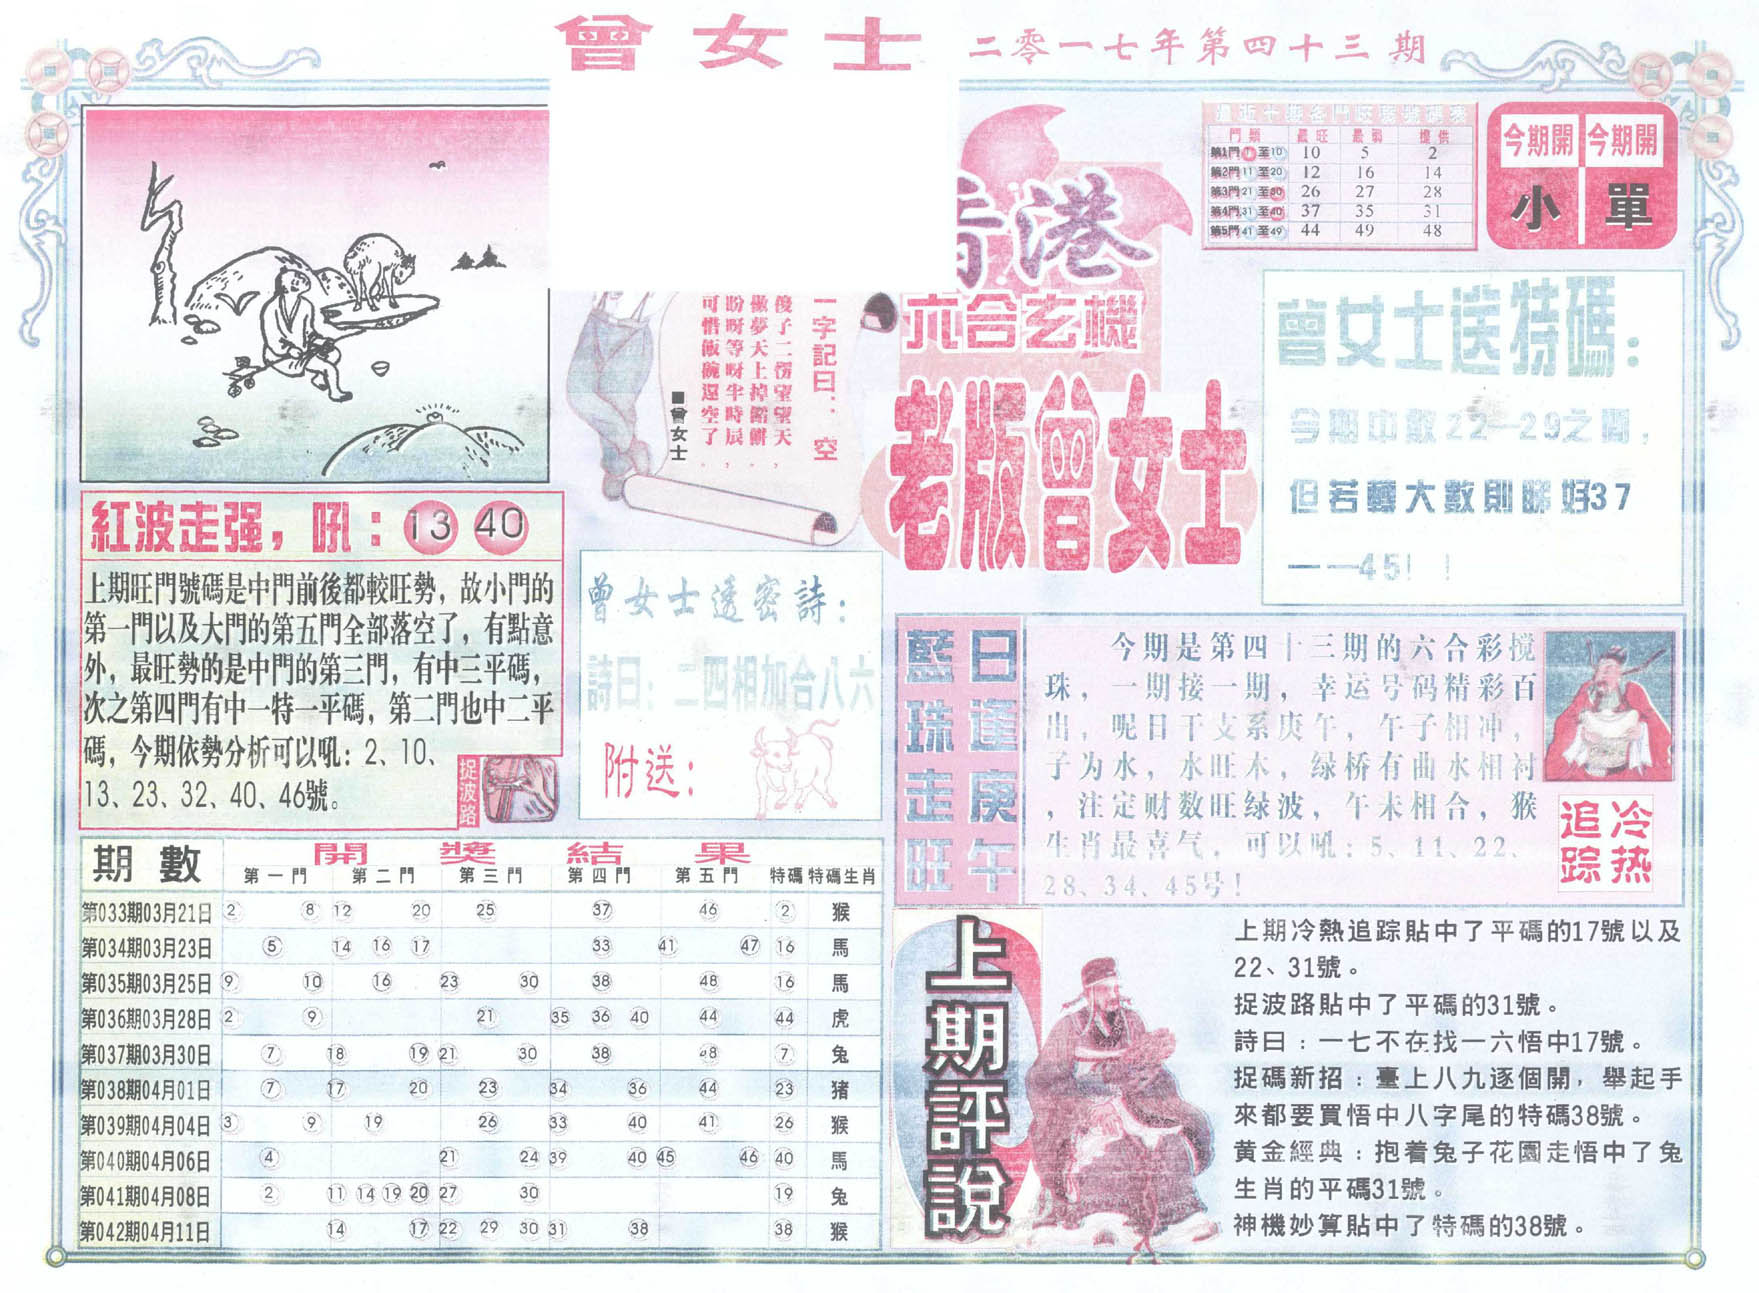 曾女士 二零一七年第四十三期
最近十期各門旺弱號碼表
門類 最旺 最弱 提供
第1門 1至10 10 5 2
第2門 11至20 12 16 14
第3門 21至30 26 27 28
第4門 31至40 37 35 31
第5門 41至49 44 49 48
今期開 今期開
小 單
香港
六合玄機
老版曾女士
一字記曰：空
傻子二愣望望天，
做夢天上掉餡餅。
盼呀等呀半時辰，
可惜飯碗還空了。
■曾女士
曾女士送特碼：
今期中數22—29之間，
但若轉大數則睇好37
——45！！
紅波走强，吼：13 40
上期旺門號碼是中門前後都較旺勢，故小門的
第一門以及大門的第五門全部落空了，有點意
外，最旺勢的是中門的第三門，有中三平碼，
次之第四門有中一特一平碼，第二門也中二平
碼，今期依勢分析可以吼：2、10、
13、23、32、40、46號。
捉波路
曾女士透密詩：
詩曰：二四相加合八六
附送：
日逢庚午
藍珠走旺
今期是第四十三期的六合彩搅
珠，一期接一期，幸运号码精彩百
出，呢日干支系庚午，午子相冲，
子为水，水旺木，绿桥有曲水相衬
，注定财数旺绿波，午未相合，猴
生肖最喜气，可以吼：5、11、22、
28、34、45号！
冷热
追踪
期數 開獎結果
第一門 第二門 第三門 第四門 第五門 特碼 特碼生肖
第033期03月21日 2 8 12 20 25 37 46 2 猴
第034期03月23日 5 14 16 17 33 41 47 16 馬
第035期03月25日 9 10 16 23 30 38 48 16 馬
第036期03月28日 2 9 21 35 36 40 44 44 虎
第037期03月30日 7 18 19 21 30 38 8 7 兔
第038期04月01日 7 17 20 23 34 36 44 23 猪
第039期04月04日 3 9 19 26 33 40 41 26 猴
第040期04月06日 4 21 24 39 40 45 46 40 馬
第041期04月08日 2 11 14 19 20 27 30 19 兔
第042期04月11日 14 17 22 29 30 31 38 38 猴
上期評說
上期冷熱追踪貼中了平碼的17號以及
22、31號。
捉波路貼中了平碼的31號。
詩曰：一七不在找一六悟中17號。
捉碼新招：臺上八九逐個開，舉起手
來都要買悟中八字尾的特碼38號。
黄金經典：抱着兔子花園走悟中了兔
生肖的平碼31號。
神機妙算貼中了特碼的38號。